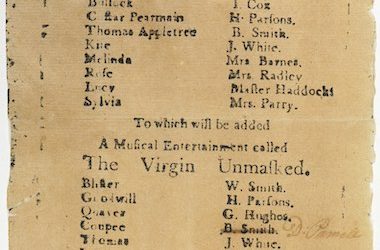 Bullock I. Cox
C. ftar Pearmain H. Parfons.
Thomas Appletree B. Smith.
Kite J. White.
Melinda Mrs Barnes.
Rofe Mrs. Radley
Lucy Mafter Haddocks
Sylvia Mrs. Parry.
To which will be added
A Mufical Entertainment called
The Virgin Unmafked.
Blifter W. Smith.
Goodwill H. Parfons.
Quaver G. Hughes.
Coupee B. Smith.
Thomas J. White.